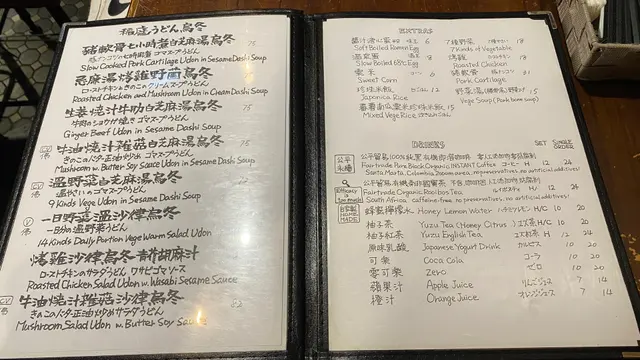 稲庭うどん烏冬
豬軟骨七小時煮白芝麻湯烏冬 75
豚ナンコツの七時間煮 ゴマスープうどん
Slow Cooked Pork Cartilage Udon in Sesame Dashi Soup
忌廉湯烤雞野菌烏冬 75
ローストチキンときのこクリームスープうどん
Roasted Chicken and Mushroom Udon in Cream Dashi Soup
生姜燒汁牛肋白芝麻湯烏冬 75
牛肉のショウガ焼き ゴマスープうどん
Ginger Beef Udon in Sesame Dashi Soup
牛油燒汁雜菇白芝麻湯烏冬 75
きのこのバター正油炒め ゴマスープうどん
Mushroom w. Butter Soy Sauce Udon in Sesame Dashi Soup
溫野菜白芝麻湯烏冬 75
温やさいのゴマスープうどん
9 Kinds Vege Udon in Sesame Dashi Soup
一日野菜溫沙律烏冬
一日分の温野菜うどん
14 Kinds Daily Portion Vege Warm Salad Udon
烤雞沙律烏冬 青芥胡麻汁
ローストチキンのサラダうどん ワサビゴマソース
Roasted Chicken Salad Udon w. Wasabi Sesame Sauce
牛油燒汁雜菇沙律烏冬
きのこのバター正油炒めサラダうどん
Mushroom Salad Udon w. Butter Soy Sauce
EXTRAS
醬汁溏心蛋 味玉 6
Soft Boiled Ramen Egg
溫泉蛋 温玉 8
Slow Boiled 68℃ Egg
粟米 コーン 6
Sweet Corn
珍珠米飯 ごはん 12
Japonica Rice
番薯南瓜粟米珍珠米飯 15
Mixed Vege Rice
7種野菜 7種やさい 18
7 Kinds of Vegetable
烤雞 ローストチキン 18
Roasted Chicken
豬軟骨 豚ナンコツ 21
Pork Cartilage
野菜湯 15
Vege Soup (Pork bone soup)
DRINKS
SET SINGLE ORDER
公平貿易100%純黑有機即溶咖啡
Fairtrade Pure Black Organic INSTANT Coffee コーヒー H 12 24
Santa Marta, Colombia 200mm area, no preservatives, no artificial additives!
公平貿易有機南非國寶茶 不含咖啡因
Fairtrade Organic Rooibos Tea ルイボスティ H 12 24
South Africa, caffeine-free, no preservatives, no artificial additives!
自家製 HOME MADE 蜂製檸檬水 Honey Lemon Water ハチミツレモン H/C 10 20
柚子茶 Yuzu Tea (Honey Citrus) ユズ茶 H/C 10 20
柚子紅茶 Yuzu English Tea ユズ紅茶 H 12 24
原味乳酸 Japanese Yogurt Drink カルピス 10 20
可樂 Coca Cola コーラ 10 20
零可樂 Zero ゼロ 10 20
蘋果汁 Apple Juice りんごジュース 7 14
橙汁 Orange Juice オレンジジュース 7 14